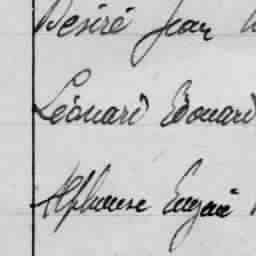 Désiré Jean
Léonard Edouard
Alphonse Eugène